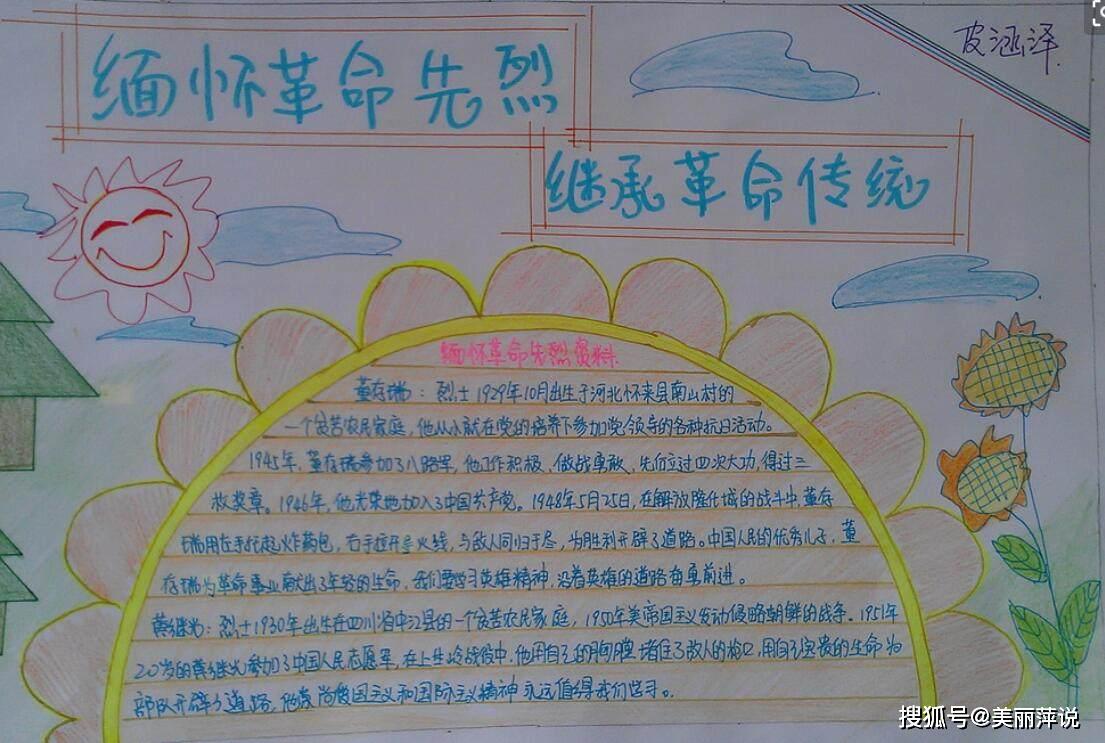 缅怀革命先烈
皮涵泽
继承革命传统
缅怀革命先烈资料
董存瑞：烈士1929年10月出生于河北怀来县南山村的
一个贫苦农民家庭，他从小就在党的培养下参加党领导的各种抗日活动。
1945年，董存瑞参加了八路军，他工作积极，做战勇敢，先后立过四次大功，得过三
枚奖章。1946年，他光荣地加入了中国共产党。1948年5月25日，在解放隆化城的战斗中，董存
瑞用左手托起炸药包，右手拉开导火线，与敌人同归于尽，为胜利开辟了道路。中国人民的优秀儿子，董
存瑞为革命事业献出了年轻的生命，我们要学习英雄精神，沿着英雄的道路奋勇前进。
黄继光：烈士1930年出生在四川省中江县的一个贫苦农民家庭，1950年美帝国主义发动侵略朝鲜的战争。1951年
20岁的黄继光参加了中国人民志愿军，在上甘岭战役中，他用自己的胸膛堵住了敌人的枪口，用自己宝贵的生命为
部队开辟了道路，他崇尚爱国主义和国际主义精神永远值得我们学习。
搜狐号@美丽萍说